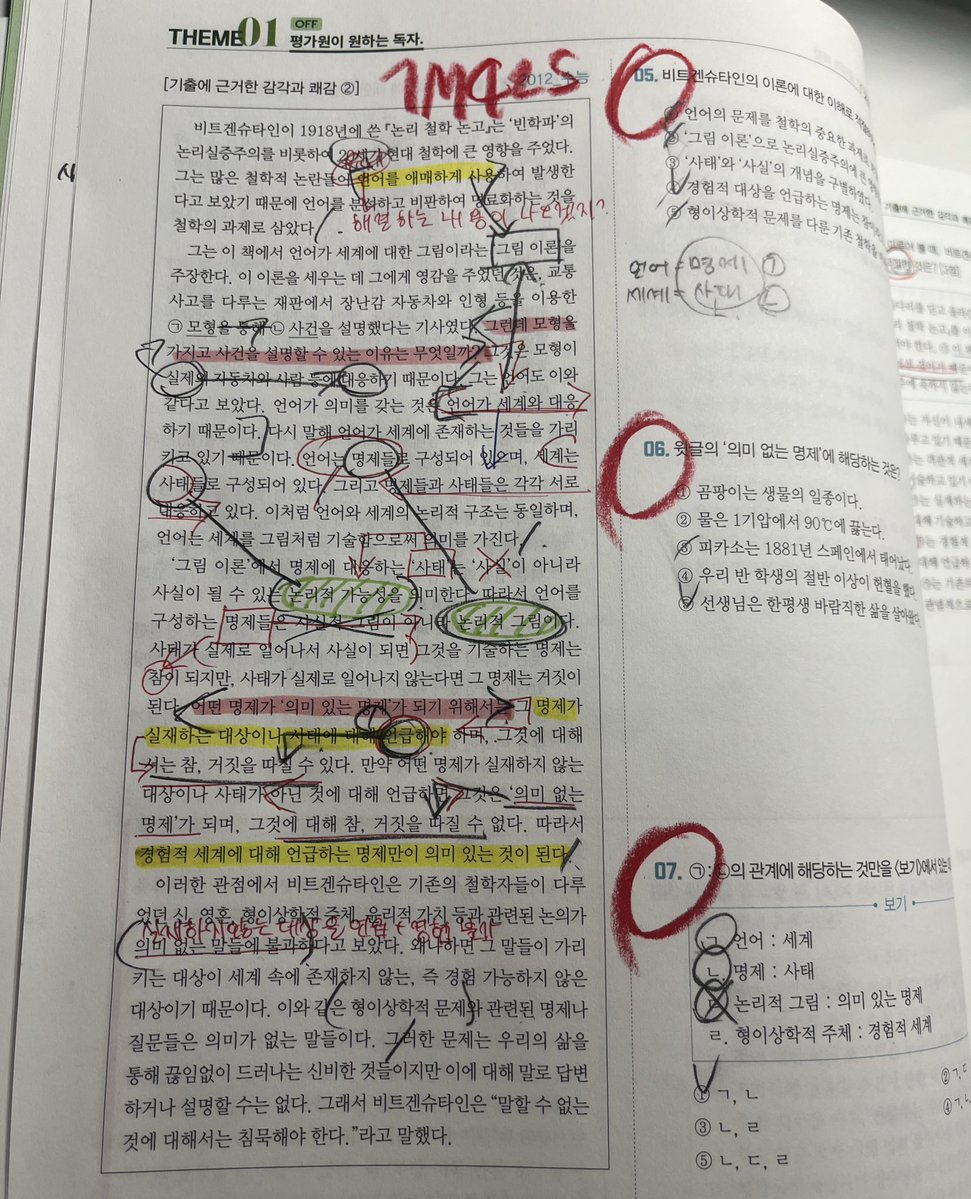 THEME 01 OFF
평가원이 원하는 독자.
[기출에 근거한 감각과 쾌감 ②]
2012 수능
비트겐슈타인이 1918년에 쓴 『논리 철학 논고』는 '빈학파'의
논리실증주의를 비롯하여 20세기 현대 철학에 큰 영향을 주었다.
그는 많은 철학적 논란들이 언어를 애매하게 사용하여 발생한
다고 보았기 때문에 언어를 분석하고 비판하여 명료화하는 것을
철학의 과제로 삼았다.
해결하는 내용이 나오겠지?
그는 이 책에서 언어가 세계에 대한 그림이라는 '그림 이론'을
주장한다. 이 이론을 세우는 데 그에게 영감을 주었던 것은, 교통
사고를 다루는 재판에서 장난감 자동차와 인형 등을 이용한
㉠ 모형을 통해 ㉡ 사건을 설명했다는 기사였다. 그런데 모형을
가지고 사건을 설명할 수 있는 이유는 무엇일까? 그것은 모형이
실제의 자동차와 사람 등에 대응하기 때문이다. 그는 언어도 이와
같다고 보았다. 언어가 의미를 갖는 것은 언어가 세계와 대응
하기 때문이다. 다시 말해 언어가 세계에 존재하는 것들을 가리
키고 있기 때문이다. 언어는 명제들로 구성되어 있으며, 세계는
사태들로 구성되어 있다. 그리고 명제들과 사태들은 각각 서로
대응하고 있다. 이처럼 언어와 세계의 논리적 구조는 동일하며,
언어는 세계를 그림처럼 기술함으로써 의미를 가진다.
'그림 이론'에서 명제에 대응하는 '사태'는 '사실'이 아니라
사실이 될 수 있는 논리적 가능성을 의미한다. 따라서 언어를
구성하는 명제들은 사실적 그림이 아니라 논리적 그림이다.
사태가 실제로 일어나서 사실이 되면 그것을 기술하는 명제는
참이 되지만, 사태가 실제로 일어나지 않는다면 그 명제는 거짓이
된다. 어떤 명제가 '의미 있는 명제'가 되기 위해서는 그 명제가
실재하는 대상이나 사태에 대해 언급해야 하며, 그것에 대해
서는 참, 거짓을 따질 수 있다. 만약 어떤 명제가 실재하지 않는
대상이나 사태가 아닌 것에 대해 언급하면 그것은 '의미 없는
명제'가 되며, 그것에 대해 참, 거짓을 따질 수 없다. 따라서
경험적 세계에 대해 언급하는 명제만이 의미 있는 것이 된다.
이러한 관점에서 비트겐슈타인은 기존의 철학자들이 다루
었던 신, 영혼, 형이상학적 주체, 윤리적 가치 등과 관련된 논의가
의미 없는 말들에 불과하다고 보았다. 왜냐하면 그 말들이 가리
키는 대상이 세계 속에 존재하지 않는, 즉 경험 가능하지 않은
대상이기 때문이다. 이와 같은 형이상학적 문제와 관련된 명제나
질문들은 의미가 없는 말들이다. 그러한 문제는 우리의 삶을
통해 끊임없이 드러나는 신비한 것들이지만 이에 대해 말로 답변
하거나 설명할 수는 없다. 그래서 비트겐슈타인은 "말할 수 없는
것에 대해서는 침묵해야 한다."라고 말했다.
05. 비트겐슈타인의 이론에 대한 이해로
① 언어의 문제를 철학의 중요한 과제로
② '그림 이론'으로 논리실증주의에 큰
③ '사태'와 '사실'의 개념을 구별하였다.
④ 경험적 대상을 언급하는 명제는
⑤ 형이상학적 문제를 다룬 기존 철학을
언어 = 명제 ㉠
세계 = 사태 ㉡
06. 윗글의 '의미 없는 명제'에 해당하는 것은?
① 곰팡이는 생물의 일종이다.
② 물은 1기압에서 90℃에 끓는다.
③ 피카소는 1881년 스페인에서 태어났다.
④ 우리 반 학생의 절반 이상이 헌혈을 했다.
⑤ 선생님은 한평생 바람직한 삶을 살아왔다.
07. ㉠ : ㉡의 관계에 해당하는 것만을 〈보기〉에서 있는
보기
ㄱ. 언어 : 세계
ㄴ. 명제 : 사태
ㄷ. 논리적 그림 : 의미 있는 명제
ㄹ. 형이상학적 주체 : 경험적 세계
① ㄱ, ㄴ
② ㄱ, ㄷ
③ ㄴ, ㄹ
④ ㄱ,
⑤ ㄴ, ㄷ, ㄹ